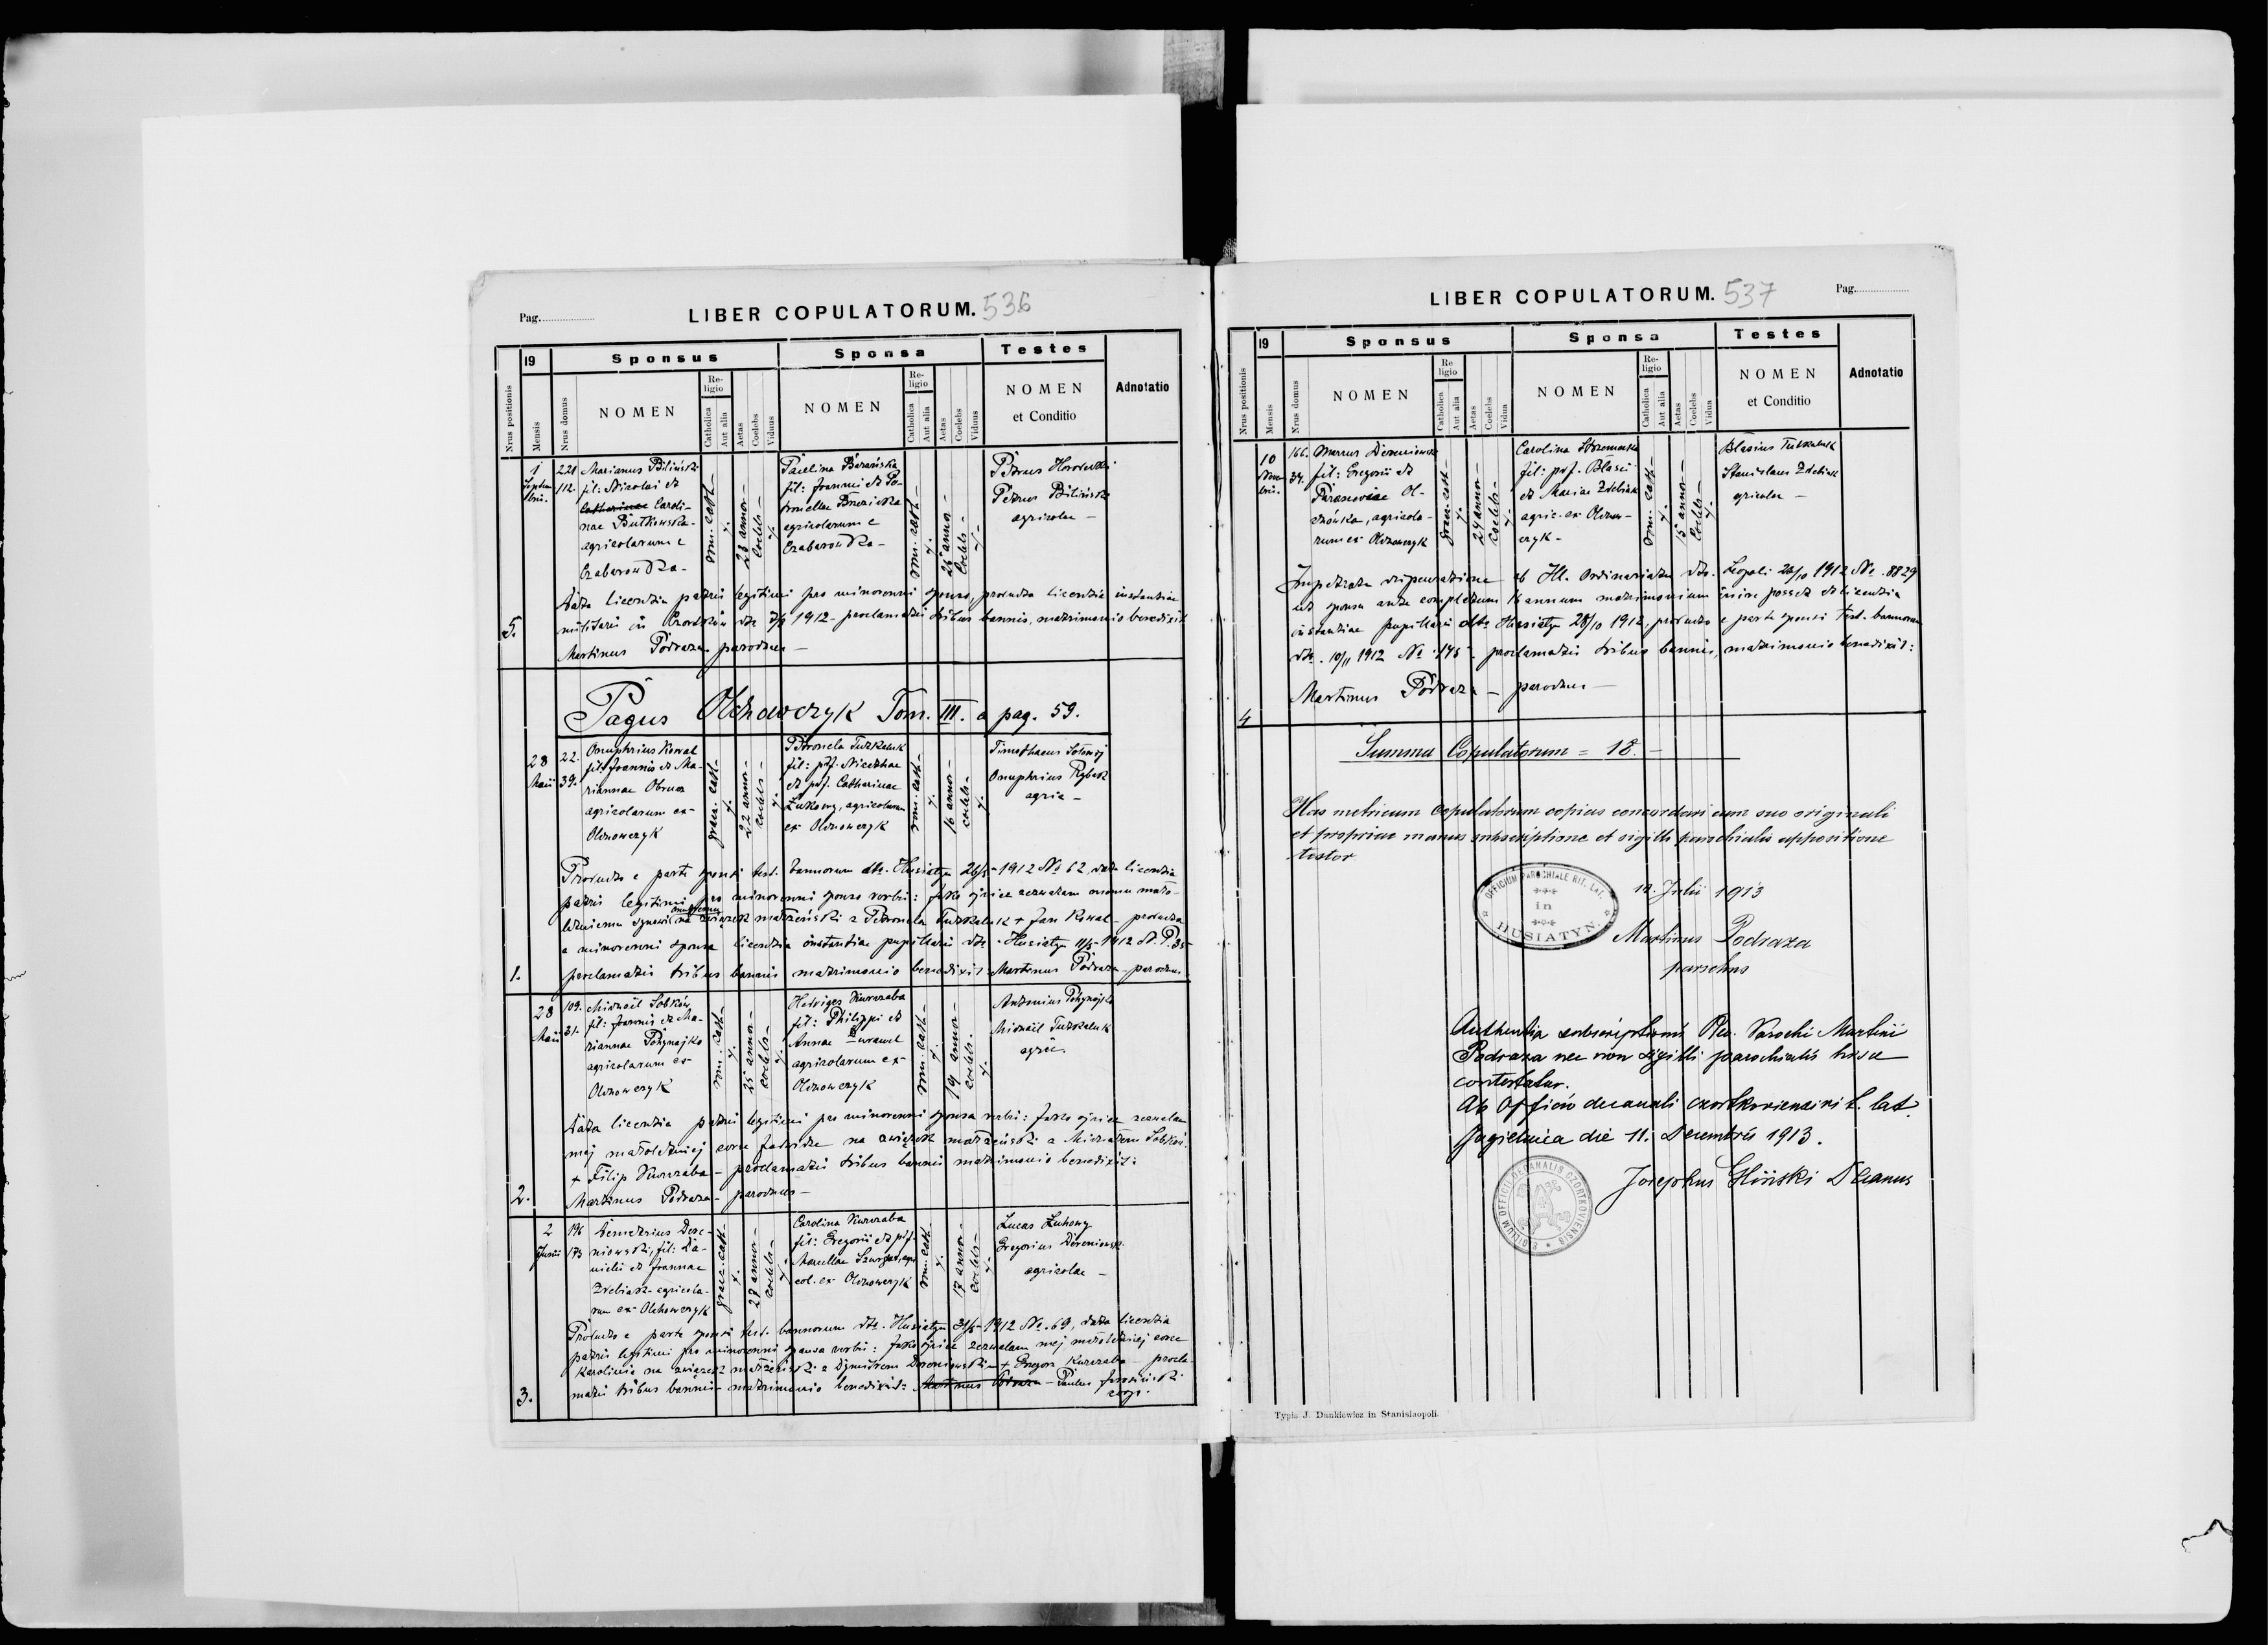 Pag.
LIBER COPULATORUM. 536
19
Sponsus
Sponsa
Testes
Nrus positionis
Mensis
Nrus domus
NOMEN
Religio
Catholica
Aut alia
Aetas
Coelebs
Viduus
NOMEN
Religio
Catholica
Aut alia
Aetas
Coelebs
Viduus
NOMEN
et Conditio
Adnotatio
5.
1
Septem
bris.
221
112.
Marianus Biliński
fil: Nicolai et
Catharinae Caroli-
nae Butkowska-
agricolarum e
Czabarówka-
rom. cath-
28 annor-
Coelebs-
Paulina Barańska
fil: Joannis et Pe-
tronellae
agricolarum e
Czabarówka-
rom. cath-
26 annor-
Coelebs-
Petrus
Petrus Biliński
agricolae -
Data licentia patris legitimi pro minorenni sponso, producta licentia instantiae
militaris in Czortków dto 1912 - proclamatis tribus bannis, matrimonio benedixit
Martinus Podraza parochus -
Pagus Olchowczyk Tom. III. a pag. 59.
1.
28
Maii
22.
39.
Onuphrius Kowal
fil: Joannis et Ma-
riannae
agricolarum ex-
Olchowczyk
graec. cath-
22 annor-
coelebs-
Petronela Tuzkaluk
fil: pdf. Nicethae
et pdf. Catharinae
Żukowy, agricolarum
ex Olchowczyk
rom. cath-
16 annor-
coelebs-
Timothaeus Sołowij
Onuphrius Rybak
agric -
Producto e parte sponsi test. bannorum dto. Husiatyn 26/5 - 1912 No 62, data licentia
patris legitimi pro minorenni sponso verbis: Jako ojciec zezwalam memu mało-
letniemu synowi Onufremu na związek małżeński z Petronelą Tuzkaluk + Jan Kowal - producta
a minorenni sponsa licentia instantiae pupillaris dto. Husiatyn 11/5 - 1912 P. 35
proclamatis tribus bannis matrimonio benedixit Martinus Podraza - parochus
2.
28
Maii
109.
31.
Michaël Sobków
fil: Joannis et Ma-
riannae Pohynajko
agricolarum ex
Olchowczyk
rom. cath-
25 annor-
coelebs-
Hedviges Kurczaba
fil: Philippi et
Annae
agricolarum ex-
Olchowczyk
rom. cath-
19 annor-
coelebs-
Antonius Pohynajko
Michaël Tuzkaluk
agric.
Data licentia patris legitimi pro minorenni sponsa verbis: Jako ojciec zezwalam
mej małoletniej córce Jadwidze na związek małżeński z Michałem Sobków
+ Filip Kurczaba - proclamatis tribus bannis matrimonio benedixit:
Martinus Podraza - parochus -
3.
2
Junii
196
173
Demetrius Dere-
niowski, fil: Da-
nielis et Joannae
Zdebiak - agricola-
rum ex - Olchowczyk
graec. cath-
28 annor-
coelebs-
Carolina Kurczaba
fil: Gregorii et pdf.
agri
col. ex Olchowczyk
rom. cath-
17 annor-
coelebs-
Lucas Żukowy
Gregorius Dereniowski
agricolae -
Producto e parte sponsi test. bannorum dto. Husiatyn 31/5 - 1912 No. 69, data licentia
patris legitimi pro minorenni sponsa verbis: Jako ojciec zezwalam mej małoletniej córce
Karolinie na związek małżeński z Dymitrem Dereniowskim + Gregor Kurczaba - procla-
matis tribus bannis - matrimonio benedixit: Martinus Podraza - Paulus
coop.
LIBER COPULATORUM. 537
Pag.
19
Sponsus
Sponsa
Testes
Nrus positionis
Mensis
Nrus domus
NOMEN
Religio
Catholica
Aut alia
Aetas
Coelebs
Viduus
NOMEN
Religio
Catholica
Aut alia
Aetas
Coelebs
Vidua
NOMEN
et Conditio
Adnotatio
4
10
Novem
bris.
166.
34.
Marcus Dereniowski
fil: Gregorii et
Parascevae Ol-
agricola-
rum ex Olchowczyk
graec. cath-
24 annor-
coelebs-
Carolina
fil: pdf. Blasii
et Mariae Zdebiak
agric. ex Olchow-
czyk -
rom. cath-
15 annor-
Coelebs-
Blasius Tuzkaluk
Stanislaus Zdebiak
agricolae -
Impetrata dispensatione ab Ill. Ordinariatu dto. Leopoli 28/10 1912 No. 8829
ut sponsa ante completum 16 annum matrimonium inire posset et licentia
instantiae pupillaris dto Husiatyn 28/10 1912, producto e parte sponsi test. bannorum
dto. 10/11 1912 No 175 - proclamatis tribus bannis, matrimonio benedixit:
Martinus Podraza - parochus -
Summa Copulatorum = 18. -
Has metricum copulatorum copias concordari cum suo originali
et propriae manus subscriptione et sigilli parochialis appositione
testor
OFFICIUM PAROCHIALE RIT. LAT.
in
HUSIATYN.
10. Julii 1913
Martinus Podraza
parochus
Authentia subscriptionis Rev. Parochi Martini
Podraza nec non sigilli parochialis hisce
contestatur.
Ab Officio decanali czortkoviensi r. lat.
Jagielnica die 11. Decembris 1913.
SIGILLUM OFFICII DECANALIS CZORTKOVIENSIS
Josephus Gliński Decanus
Typis J. Dankiewicz in Stanislaopoli.